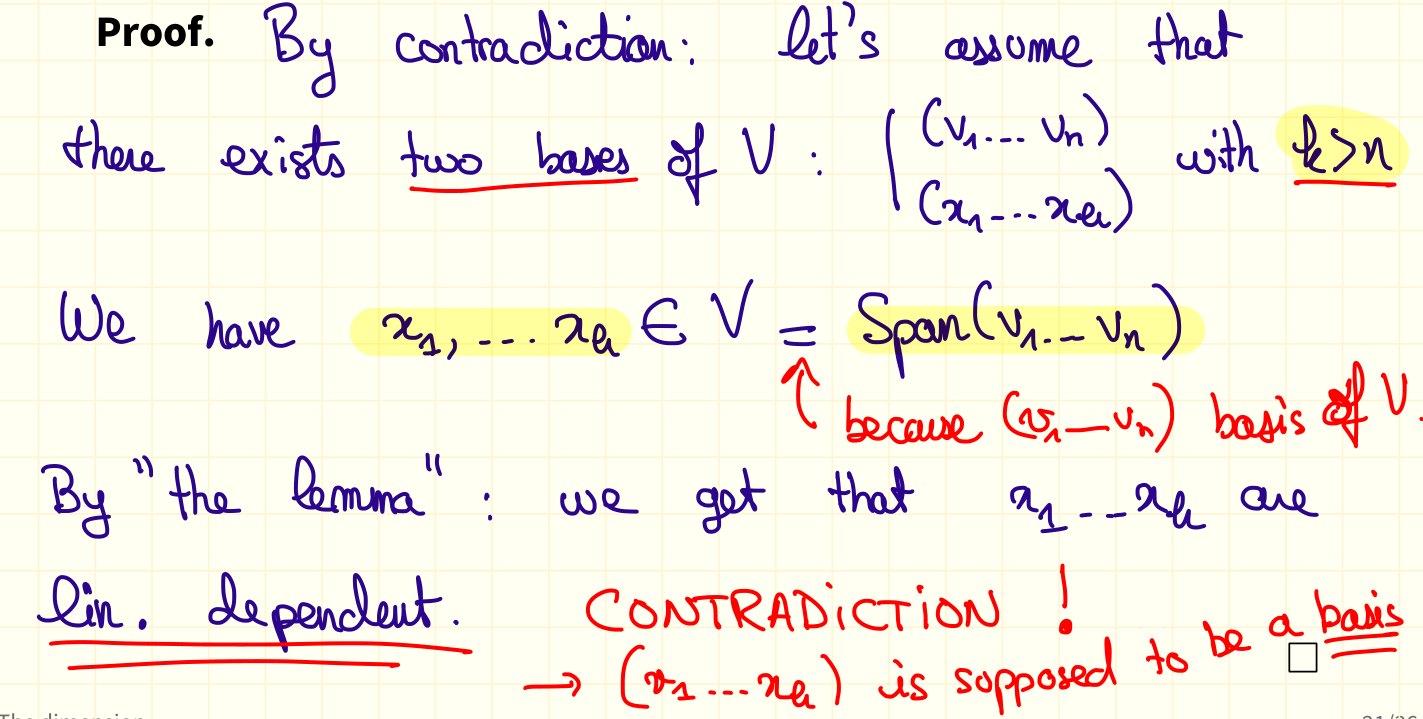 Proof. By contradiction: let's assume that
there exists two bases of V : { (v₁... vₙ) with k>n
(x₁...xₖ)
We have x₁, ... xₖ ∈ V = Span(v₁... vₙ)
because (v₁—vₙ) basis of V.
By "the lemma" : we get that x₁...xₖ are
lin. dependent. CONTRADiCTiON !
→ (x₁...xₖ) is supposed to be a basis □
The dimension